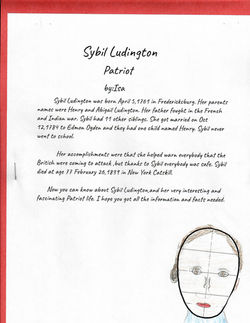 Sybil Ludington
Patriot
by:Isa
Sybil Ludington was born April 5,1761 in Fredericksburg. Her parents
names were Henry and Abigail Ludington. Her father fought in the French
and Indian war. Sybil had 11 other siblings. She got married on Oct
12,1784 to Edmon Ogden and they had one child named Henry. Sybil never
went to school.
Her accomplishments were that she helped warn everybody that the
British were coming to attack ,but thanks to Sybil everybody was safe. Sybil
died at age 77 February 26,1839 in New York Catskill.
Now you can know about Sybil Ludington,and her very interesting and
fascinating Patriot life. I hope you got all the information and facts needed.